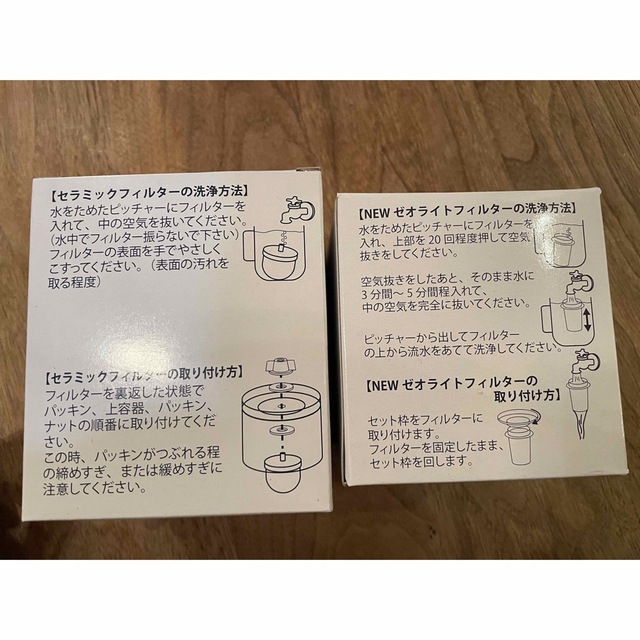 【セラミックフィルターの洗浄方法】
水をためたピッチャーにフィルターを
入れて、中の空気を抜いてください。
（水中でフィルター振らないで下さい）
フィルターの表面を手でやさしく
こすってください。（表面の汚れを
取る程度）
【セラミックフィルターの取り付け方】
フィルターを裏返した状態で
パッキン、上容器、パッキン、
ナットの順番に取り付けてくだ
さい。
この時、パッキンがつぶれる程
の締めすぎ、または緩めすぎに
注意してください。
【NEW ゼオライトフィルターの洗浄方法】
水をためたピッチャーにフィルターを
入れ、上部を 20 回程度押して空気
抜きをしてください。
空気抜きをしたあと、そのまま水に
3 分間～ 5 分間程入れて、
中の空気を完全に抜いてください。
ピッチャーから出してフィルター
の上から流水をあてて洗浄してください。
【NEW ゼオライトフィルターの
取り付け方】
セット枠をフィルターに
取り付けます。
フィルターを固定したまま、
セット枠を回します。